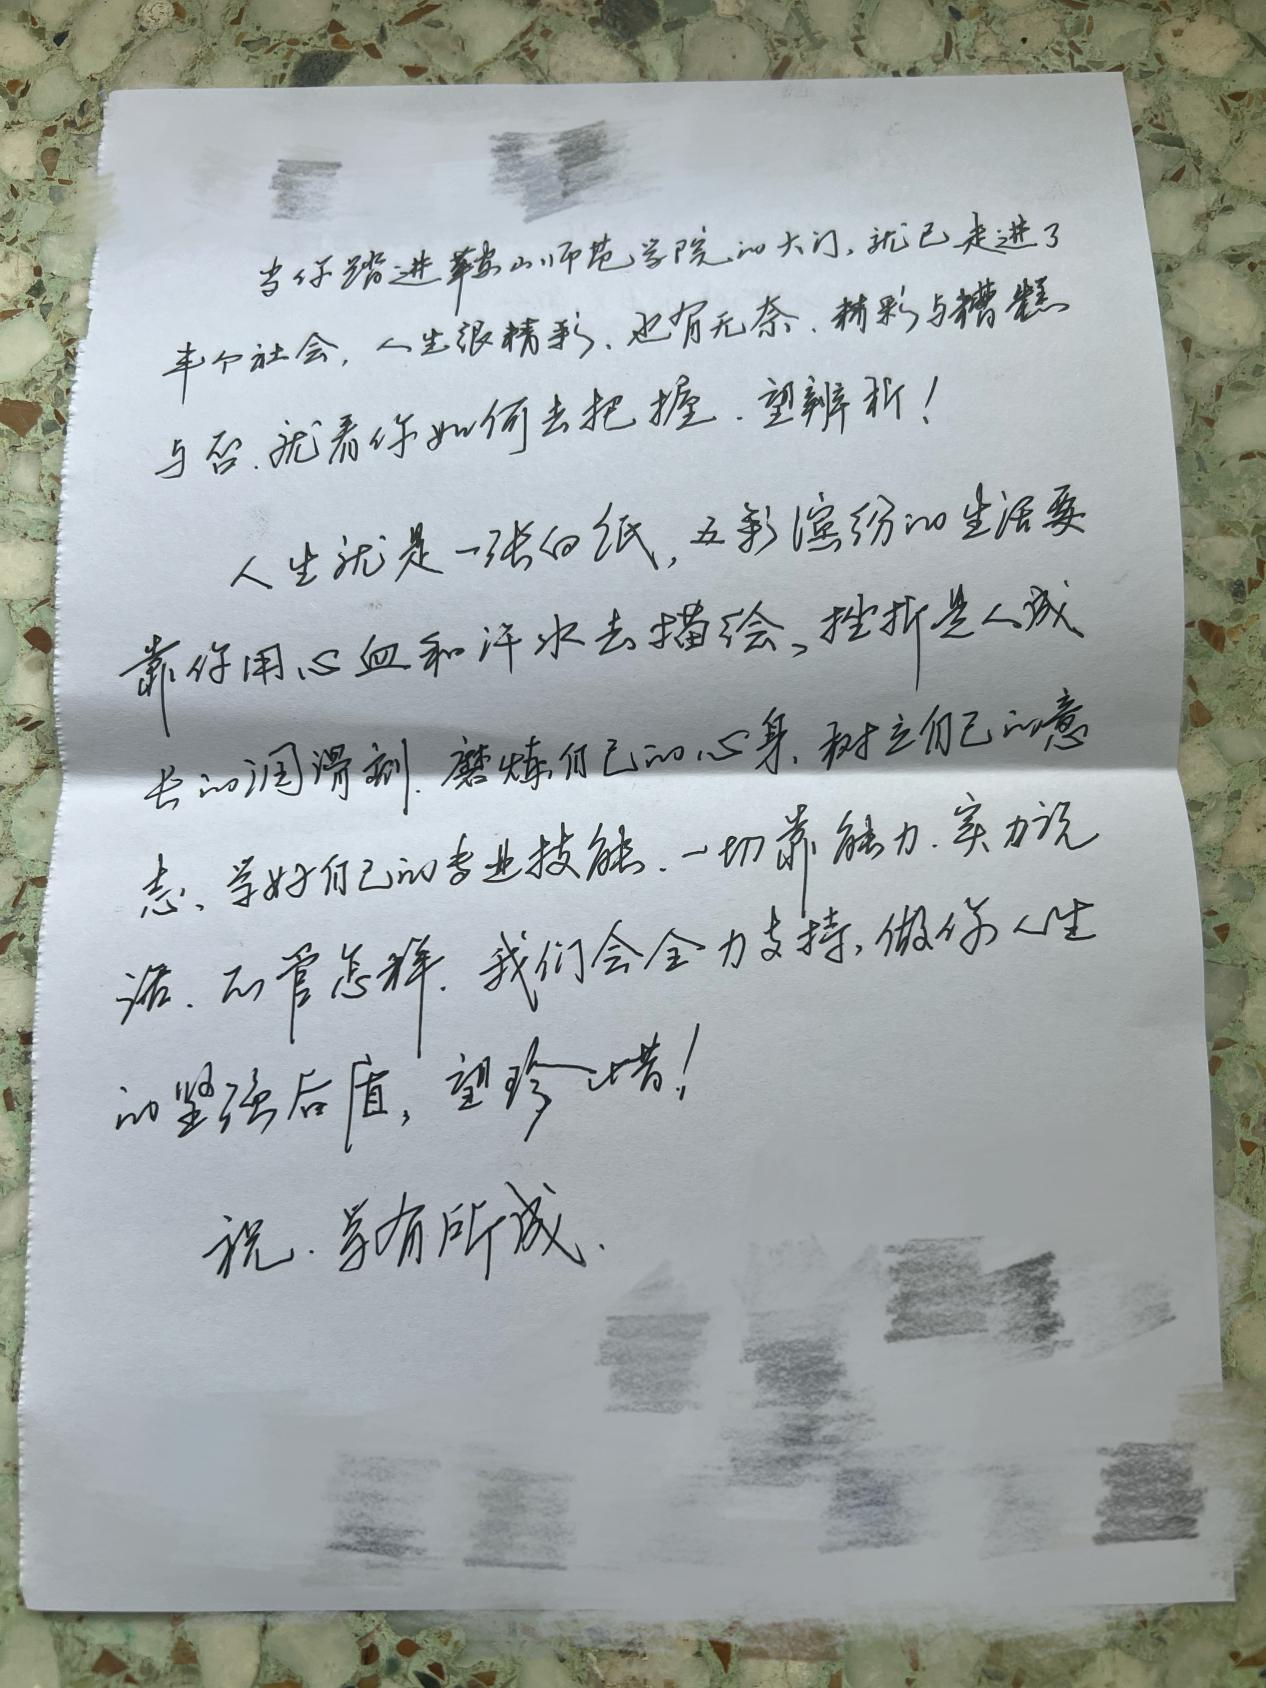 当你踏进鞍山师范学院的大门，就已走进了
半个社会，人生很精彩、也有无奈、精彩与糟糕
与否、就看你如何去把握、望辨析！
人生就是一张白纸，五彩缤纷的生活要
靠你用心血和汗水去描绘，挫折是人成
长的润滑剂、磨炼自己的心身、树立自己的意
志、学好自己的专业技能、一切靠能力、实力说
话、不管怎样、我们会全力支持，做你人生
的坚强后盾，望珍惜！
祝、学有所成、